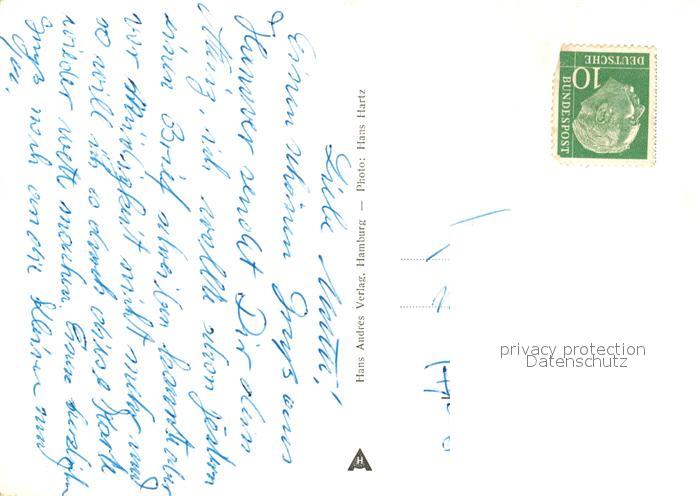 Liebe Mutti!
Einen schönen Gruß aus
Hannover sendet Dir Dein
ich wollte schon gestern
einen Brief schreiben konnte aber
vor Müdigkeit nicht mehr und
so will ich es durch diese Karte
wieder wett machen. Einen herzlichen
Gruß noch an die Kleinen und
Hans Andres Verlag, Hamburg — Photo: Hans Hartz
10
DEUTSCHE
BUNDESPOST
privacy protection
Datenschutz